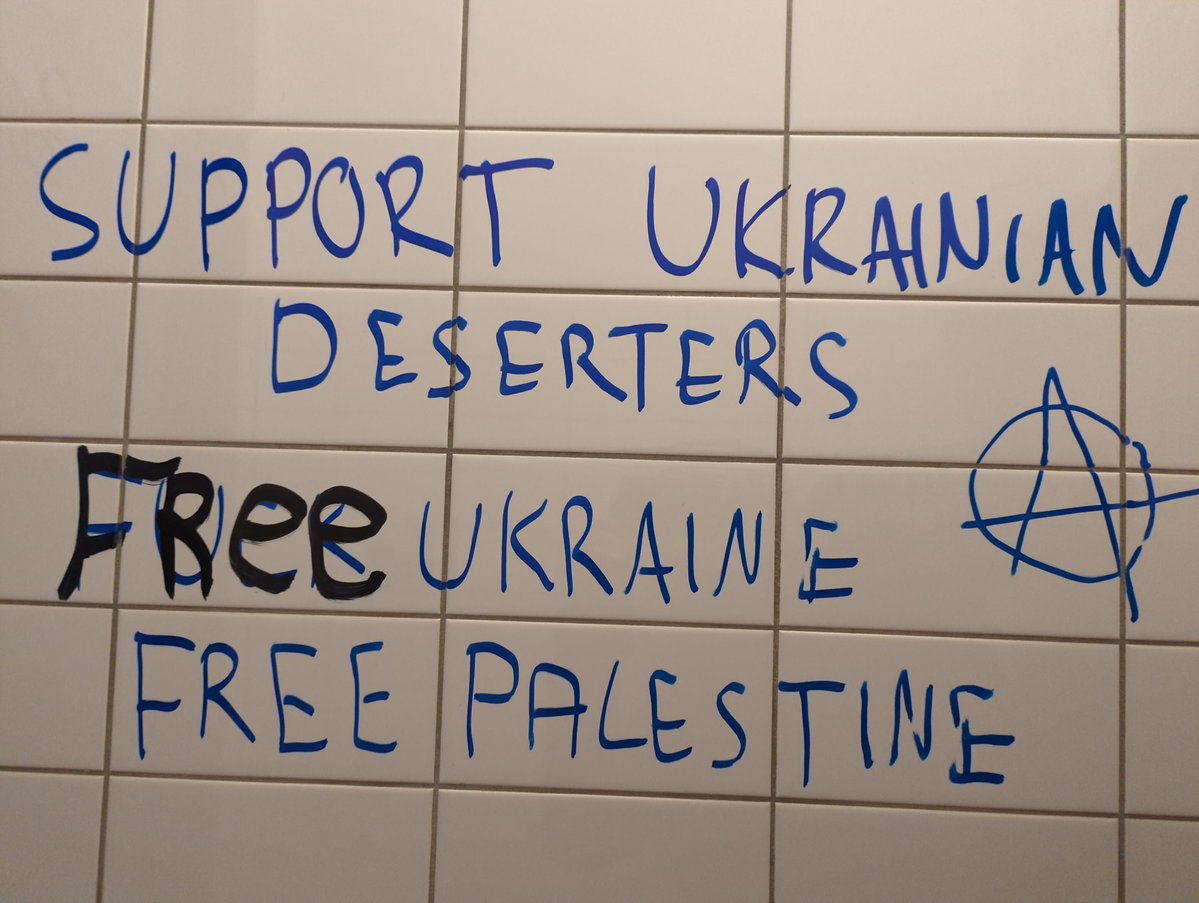 SUPPORT UKRAINIAN
DESERTERS
FRee UKRAINE
FREE PALESTINE